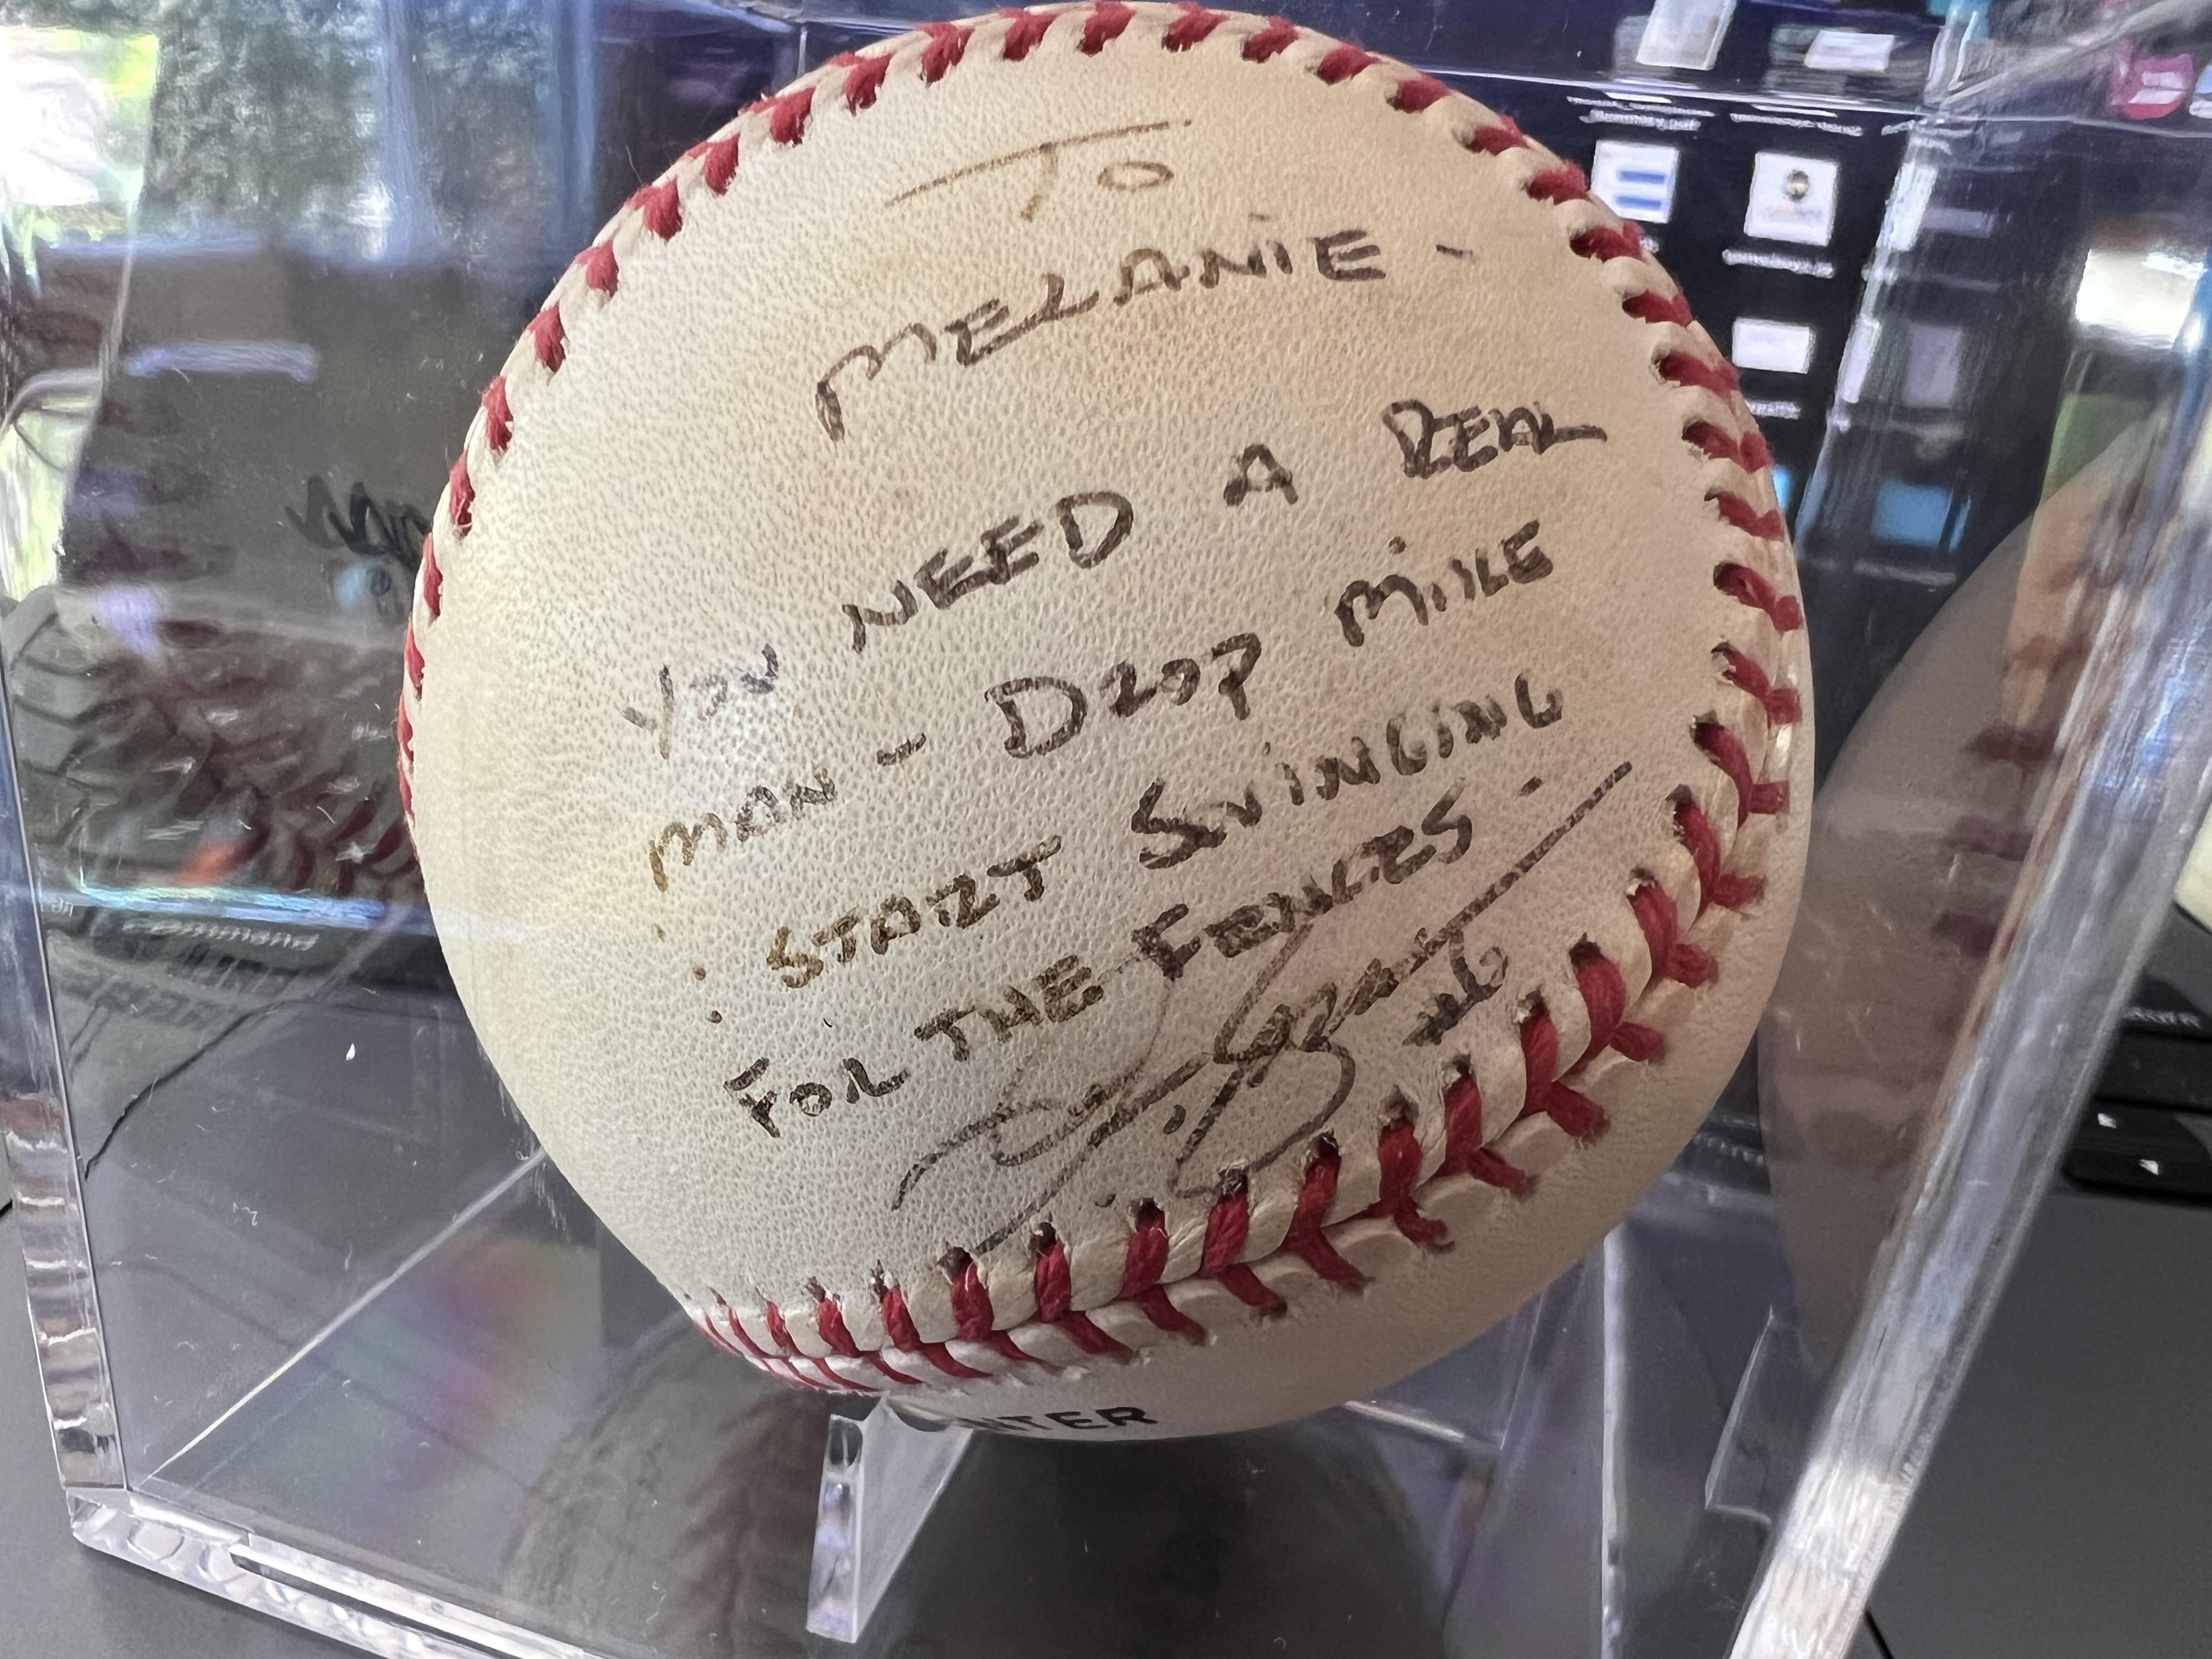 To
MELANIE -
YOU NEED A REAL
MAN - DROP MIKE
: START SWINGING
FOR THE FENCES.
#6
NTER